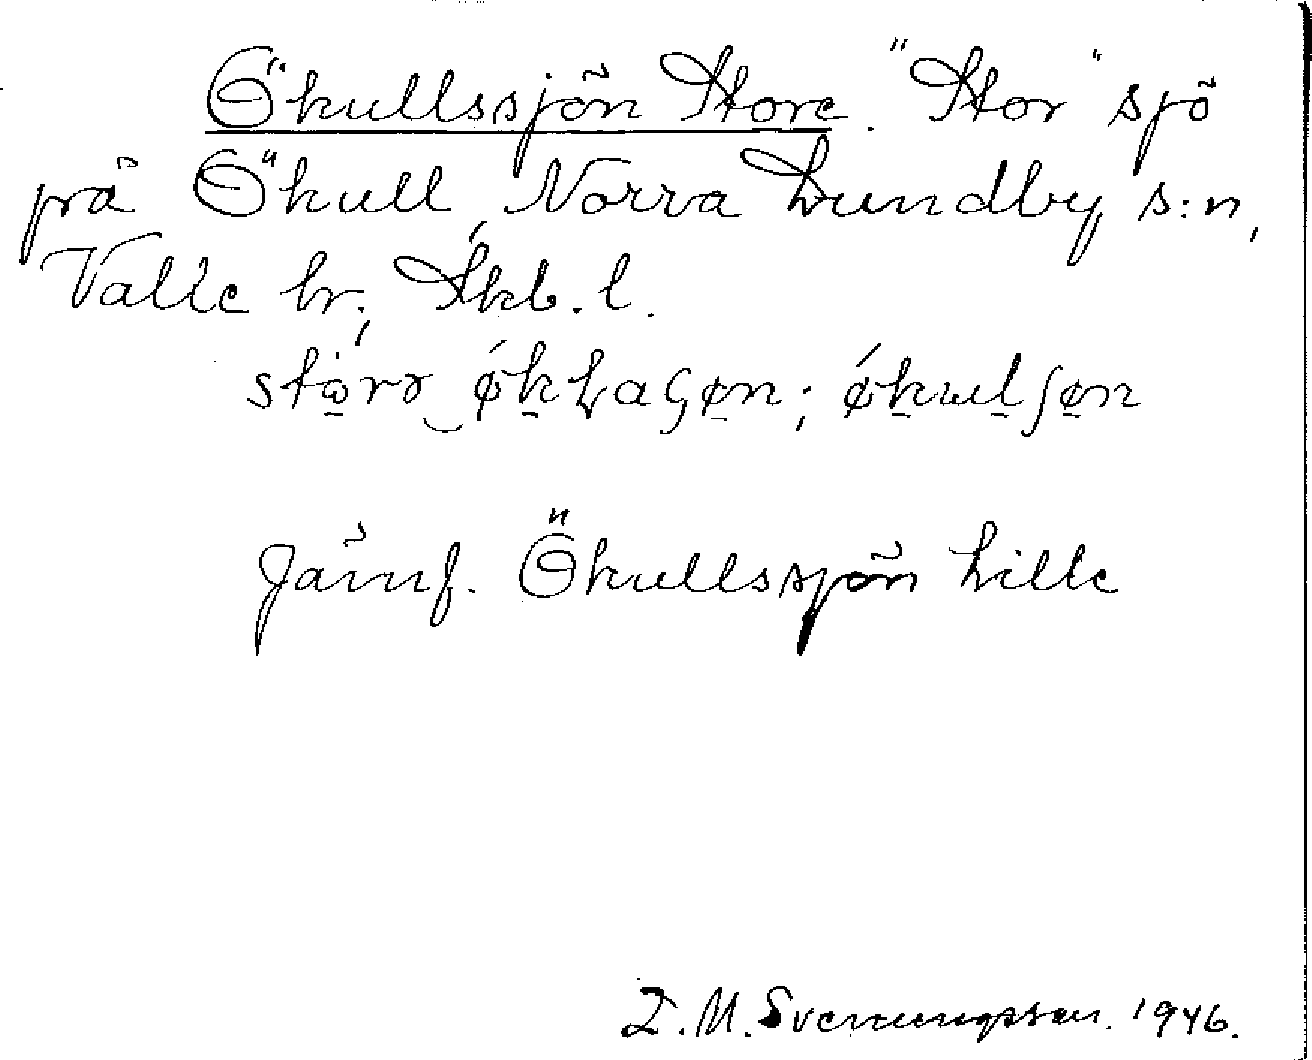 Ökullssjön Store. "Stor" sjö
på Ökull, Norra Lundby s:n,
Valle hr, Skb. l.
Jämf. Ökullssjön Lille
I. M. Svennungsson. 1946.